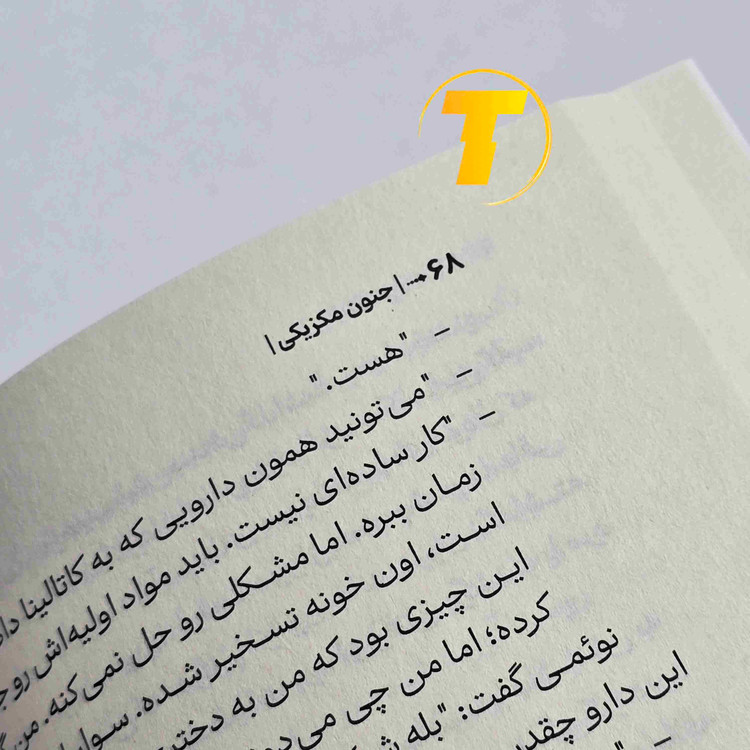 T
۶۸ | جنون مکزیکی |
– "هست."
– "می‌تونید همون دارویی که به کاتالینا
– "کار ساده‌ای نیست. باید مواد اولیه‌اش رو
زمان ببره. اما مشکلی رو حل نمی‌کنه. من
است، اون خونه تسخیر شده.
این چیزی بود که من به
کرده؛ اما من چی
نوئمی گفت: "بله
این دارو چقدر